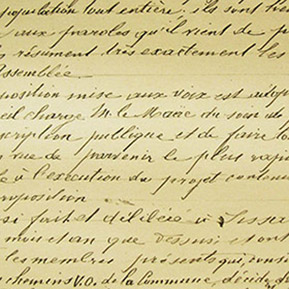 population tout entière, ils sont heu
aux paroles qu'il vient de p
résument très exactement les
ssemblée
position mise aux voix est adop
eil charge M. le Maire du soin de
scription publique et de faire to
vue de parvenir le plus rapi
à l'exécution du projet contenu
roposition
si fait et délibéré à
mois et an que dessus et ont
les membres présents qui
chemins V.O. de la Commune, décide qu